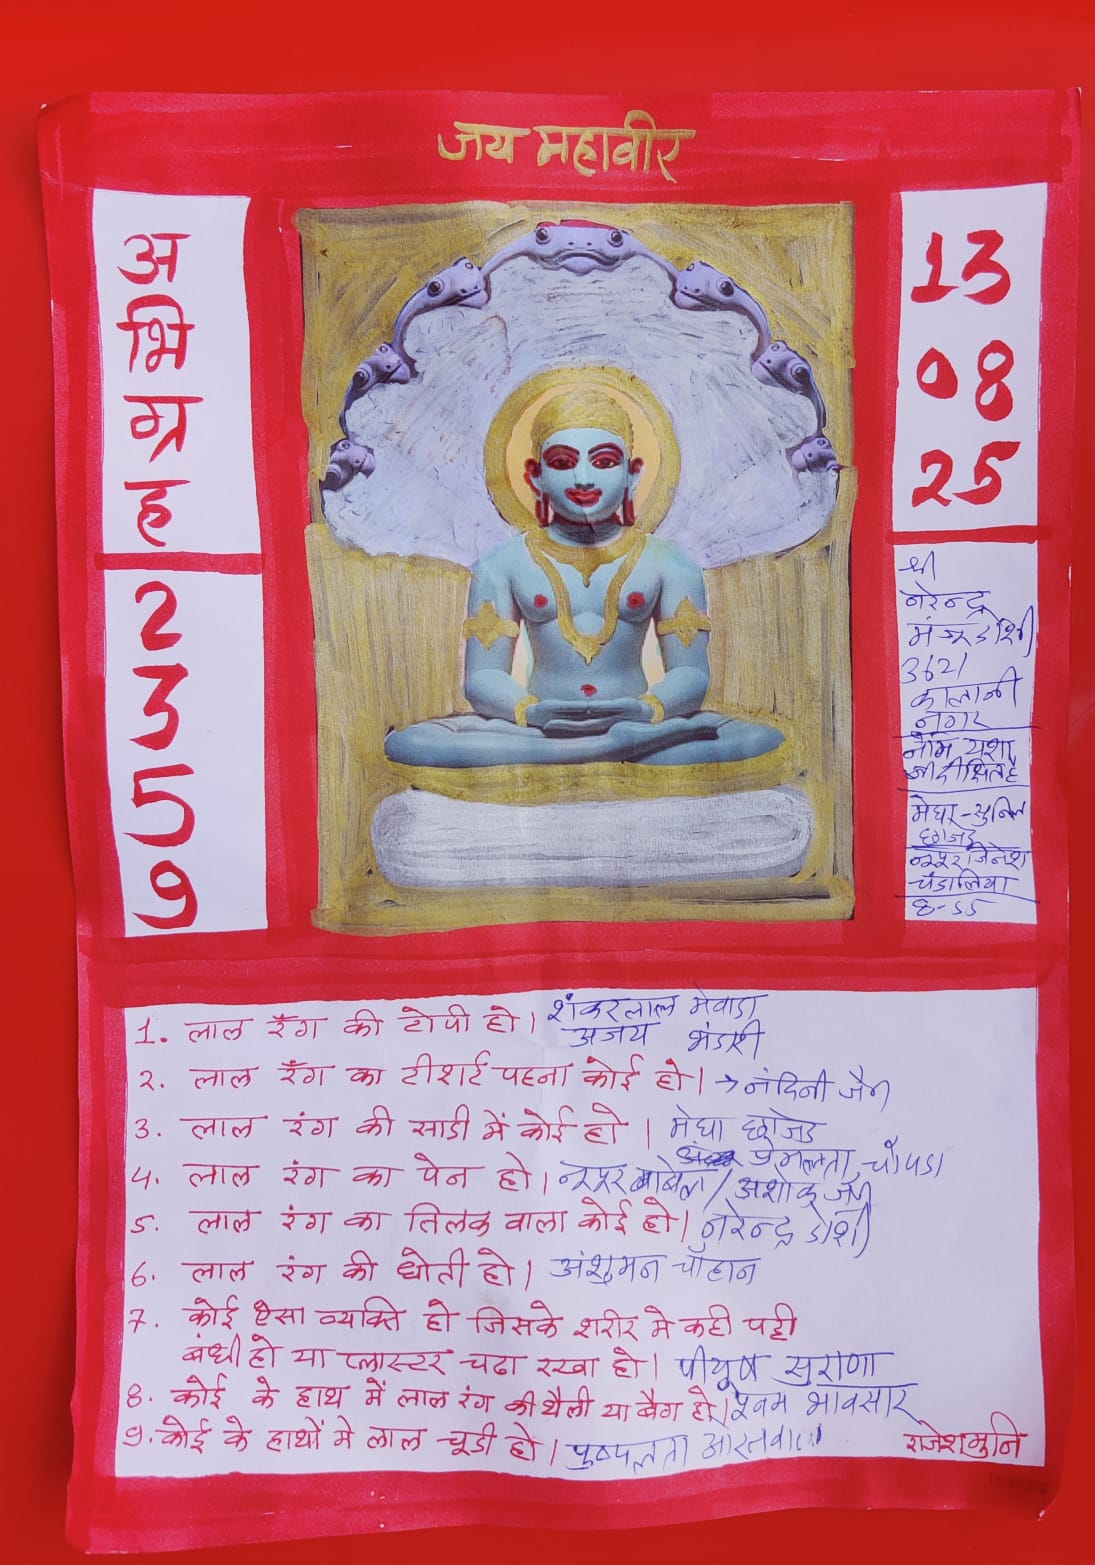 जय महावीर
अ
भि
ग्र
ह
2
3
5
9
13
08
25
श्री
नरेन्द्र
मंजू डोशी
3621
कालानी
नगर
नमि यशा
जी दीक्षित है
मेघा-सुनिल
छाजेड़
नूपुर जिनेश
चंडालिया
8-55
1. लाल रँग की टोपी हो। शंकरलाल मेवाडा
अजय भंडारी
2. लाल रँग का टीशर्ट पहना कोई हो। → नंदिनी जैन
3. लाल रंग की साडी में कोई हो। मेघा छाजेड
प्रेमलता चौपडा
4. लाल रंग का पेन हो। नूपुर बाबेल / अशोक जैन
5. लाल रंग का तिलक वाला कोई हो। नरेन्द्र डोशी
6. लाल रंग की धोती हो। अंशुमन चौहान
7. कोई ऐसा व्यक्ति हो जिसके शरीर मे कही पट्टी
बंधी हो या प्लास्टर चढा रखा हो। पीयूष सुराणा
8. कोई के हाथ में लाल रंग की थैली या बैग हो। भावसार
9. कोई के हाथों मे लाल चूडी हो। पुष्पलता ओस्तवाल
राजेशमुनि